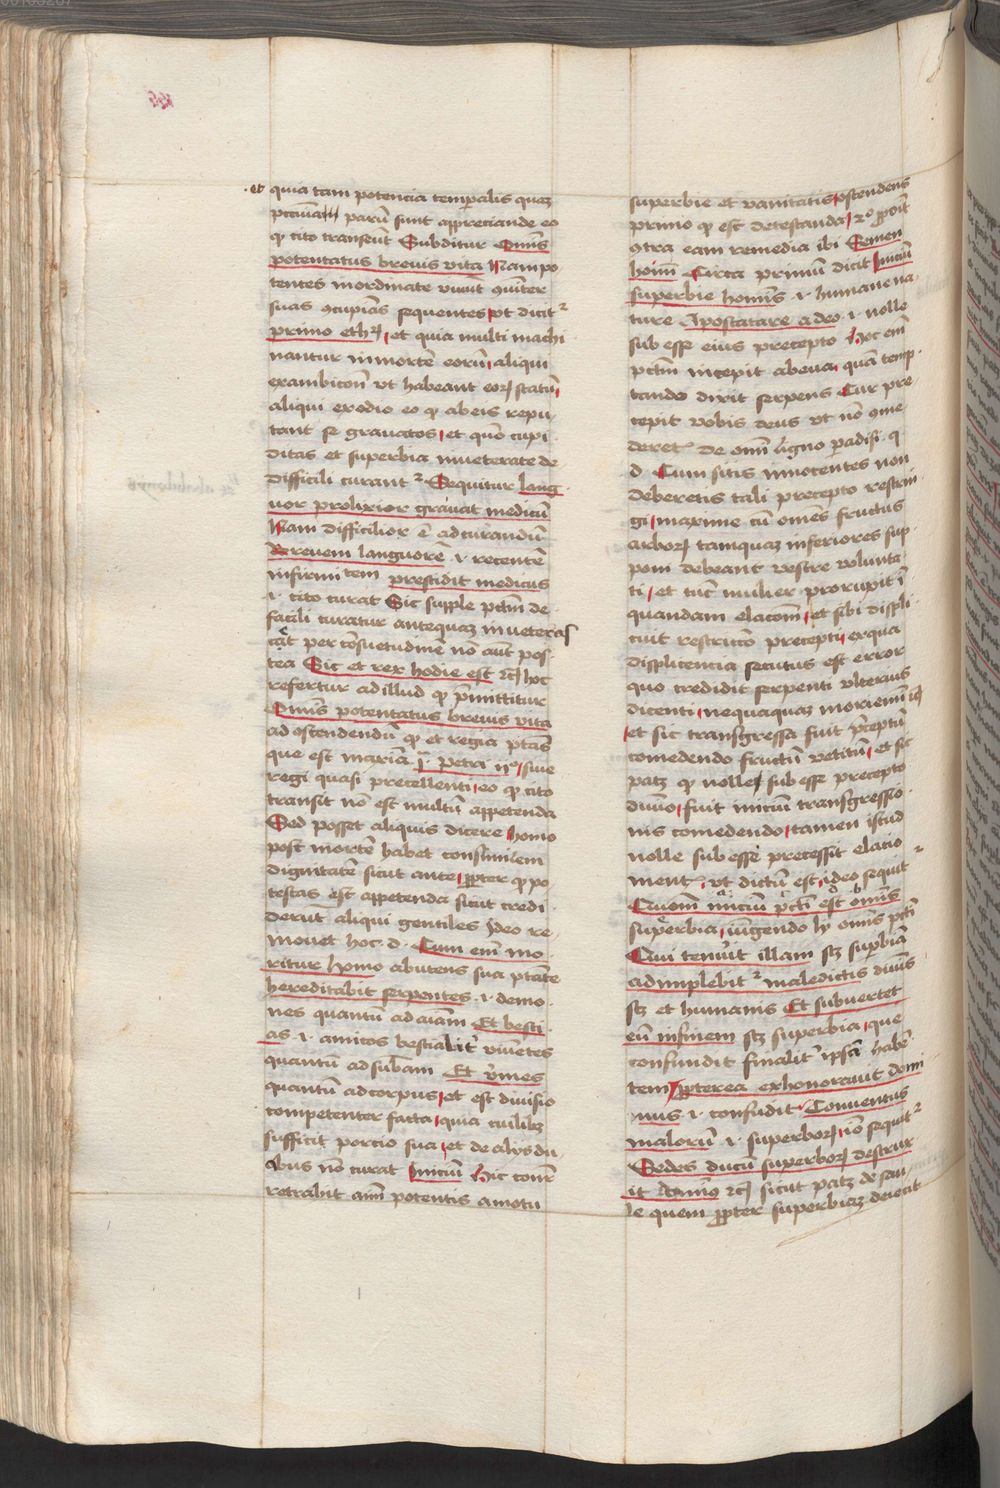 et quia tam potencia temporalis quaz
pecunia parū sunt appreciande eo
qꝫ cito transeūt Subditur Omnis
potentatus brevis vita Nam po
tentes inordinate vivūt ꝯmūter
suas ꝯcupias sequentes vt dicit
primo ethꝝ et quia multi machi
nantur in mortē eorū aliqui
ex ambiconi vt habeant eoꝝ statū
aliqui ex odio eo qꝫ ab eis repu
tant se gravatos et quō cupi
ditas et superbia inveterate de
difficili curant Sequitur lang
uor prolixior gravat medicū
Nam difficilior ē ad curandū
Brevem languorē .i. recentē
infirmitem prestidit medicus
.i. cito curat Sic supple pctm de
facili curatur antequaz inveteras
cat per cōsuetudinē nō aut pos
tea Sic et rex hodie est hoc
refertur ad illud qꝫ p̄mittitur
Omnis potentatus brevis vita
ad ostendendū qꝫ et regia ptās
que est maxīa .i. petri 2º sive
regi quasi precellenti eo qꝫ cito
transit nō est multū appetenda
Sed posset aliquis dicere homo
post mortē habet consimilem
dignitatē sicut ante ꝓpter qꝫ po
testas est appetenda sicut credi
derūt aliqui gentiles Ideo re
movet hoc .d. Cum em mo
ritur homo abutens sua ptāte
hereditabit serpentes .i. demo
nes quantū ad aīam Et besti
as .i. amicos bestialit viuētes
quantū ad sub̄am Et vermes
quantū ad corpus et est divisio
competenter facta quia cuilibꝫ
sufficit porcio sua et de aliis du
abus nō curat Iniciū Hic con̄r
retrahit aīm potentis a motu
superbie et vanitatis ostendens
primo qꝫ est detestanda 2º ponit
ꝯtra eam remedia ibi Semen
hoīm Circa primū dicit Iniciū
superbie hominis .i. humane na
ture Apostatare a deo .i. nolle
sub esse eius precepto hoc em
pctm incepit ab eva quā temp
tando dixit serpens Cur pre
cepit vobis deus vt nō ꝯme
deret de omī ligno paradisi q
d Cum sitis innocentes non
deberetis tali precepto restrin
gi maxime cū omēs fructus
arboꝝ tamquaz inferiores sup
poni debeant vestre volunta
ti et tūc mulier prorupit ī
quandam elacom et sibi displi
cuit restricto precepti ex qua
displicencia secutus est error
quo credidit serpenti ulterius
dicenti nequaquaz moriemini
et sic transgressa fuit p̄ceptū
comedendo fructū vetitū et sic
patꝫ qꝫ nolle sub esse precepto
divino fuit iniciū transgressio
nis comedendo tamen istud
nolle sub esse precessit elacio
ment vt dictū est ideo sequit
Quonī iniciū pcti est omīs
superbia iungendo ly omīs pcti
Qui tenuit illam scꝫ supbiā
adimplebit maledictis divīs
scꝫ et humanis Et subvertet
eū in finem scꝫ superbia que
confundit finalit ipsā habē
tem ꝓpterea exhonoravit domi
nus .i. confudit Conventus
malorū .i. superboꝝ iō sequit
Sedes ducū superboꝝ destrux
it dominus sicut patꝫ de sau
le quem ꝓpter superbiaz deiecit